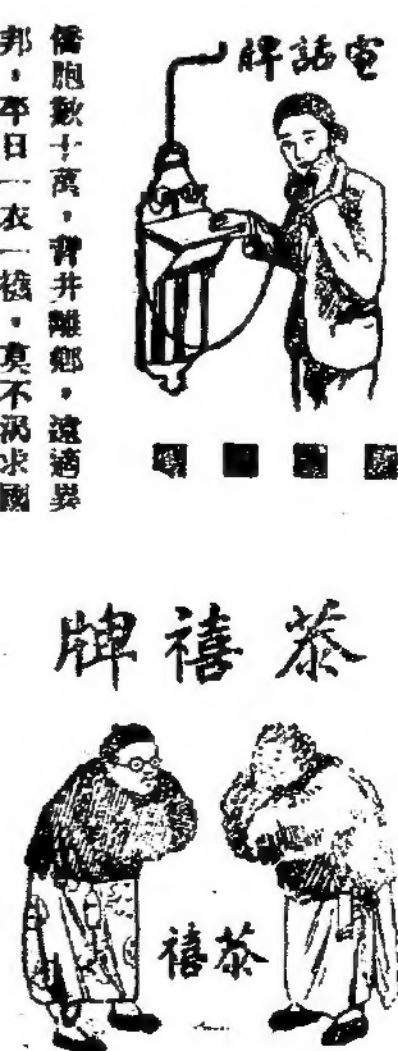 電話牌
僑胞數十萬，背井離鄉，遠適異
邦，日一衣一襪，莫不渴求國
恭禧牌
恭禧